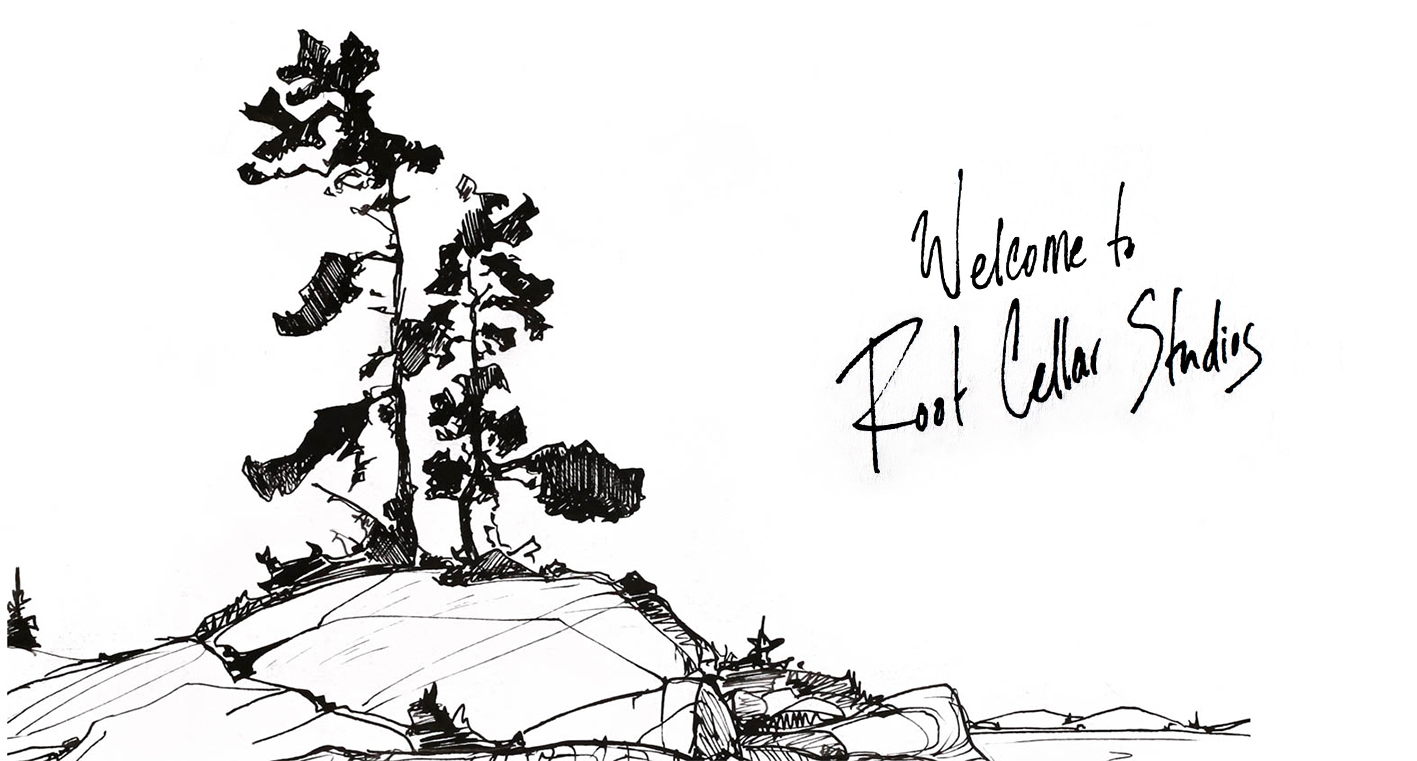 Welcome to
Root Cellar Studios